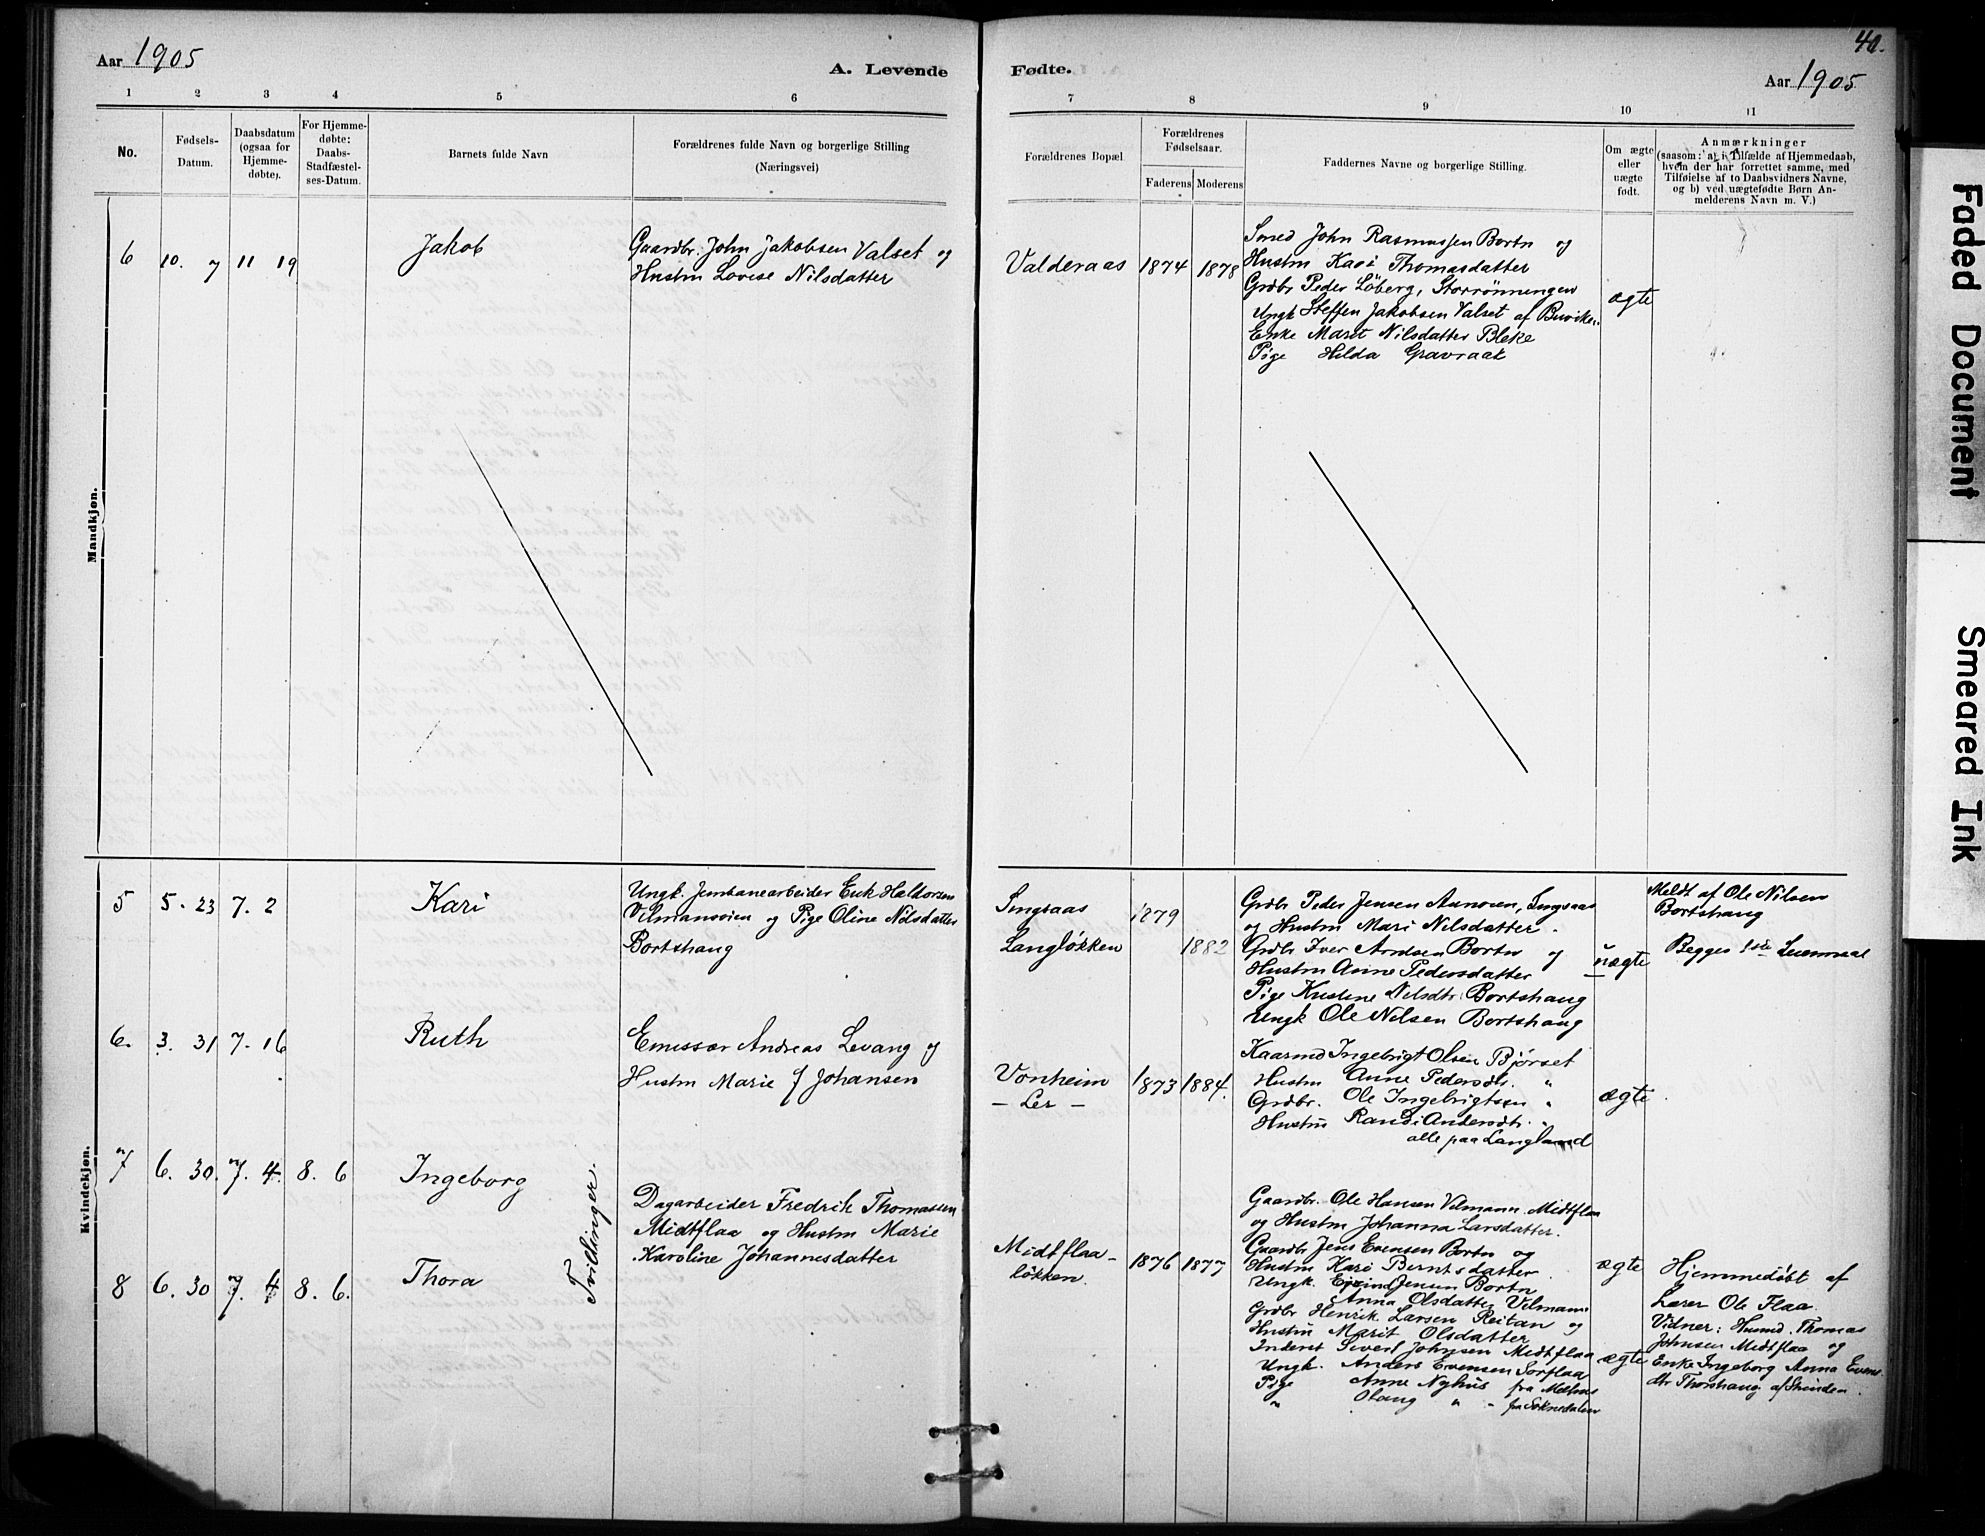 Aar 1905
A. Levende
Fødte.
40.
Aar 1905
1 2 3 4 5 6 7 8 9 10 11
No.
Fødsels-
Datum.
Daabsdatum
(ogsaa for
Hjemme-
døbte).
For Hjemme-
døbte:
Daabs-
Stadfæstel-
ses-Datum.
Barnets fulde Navn
Forældrenes fulde Navn og borgerlige Stilling
(Næringsvei)
Forældrenes Bopæl
Forældrenes
Fødselsaar.
Faderens Moderens
Faddernes Navne og borgerlige Stilling.
Om ægte
eller
uægte
født.
Anmærkninger
(saasom: a) i Tilfælde af Hjemmedaab,
hvem der har forrettet samme, med
Tilføielse af to Daabsvidners Navne,
og b) ved uægtefødte Børn An-
melderens Navn m. V.)
Mandkjøn.
6 10. 7 11 19 Jakob
Gaardbr. John Jakobsen Valset og
Hustru Lovise Nilsdatter
Valderaas 1874 1878
Smed John Rasmussen Bortn og
Hustru Kari Thomasdatter
Grdbr Peder Løberg, Storrønningen
Ungk Steffen Jakobsen Valset af Buviken
Enke Marit Nilsdatter Bleke
Pige Hilda Gravraak
ægte
Kvindekjøn.
5 5. 23 7. 2 Kari
Ungk. Jernbanearbeider Erik Haldorsen
Vilmansøien og Pige Oline Nilsdatter
Bortshaug
Singsaas 1879
Langløkken 1882
Grdbr Peder Jensen Aunøien, Singsaas
og Hustru Mari Nilsdatter.
Grdbr Iver Arntsen Bortn og
Hustru Anne Pedersdatter
Pige Kristine Nilsdtr. Bortshaug
Ungk Ole Nilsen Bortshaug
uægte
Meldt af Ole Nilsen
Bortshaug
Begges 1ste Leiermaal
6. 3. 31 7. 16 Ruth
Emissær Andreas Levang og
Hustru Marie f Johansen
Vonheim 1873 1884.
– Ler –
Kaarmd Ingebrigt Olsen Bjørset
Hustru Anne Pedersdtr. "
Grdbr. Ole Ingebrigtsen "
Hustru Randi Andersdtr. "
alle paa Langland
ægte
7 6. 30. 7. 4. 8. 6 Ingeborg
8 6. 30 7. 4 8. 6. Thora
Tvillinger.
Dagarbeider Fredrik Thomassen
Midtflaa og Hustru Marie
Karoline Johannesdatter
Midtflaa-
løkken. 1876 1877
Gaardbr. Ole Hansen Vilmann Midtflaa
og Hustru Johanna Larsdatter.
Gaardbr Jens Evensen Bortn og
Hustru Kari Berntsdatter
Ungk. Eivind Jensen Bortn
Anna Olsdatter Vilmann
Grdbr Henrik Larsen Reitan og
Hustru Marit Olsdatter
Inderst Sivert Johnsen Midtflaa
Ungk. Anders Evensen Sorflaa
Pige Anne Nyhus fra Melhus
" Olaug " " fra Soknedalen
ægte
ægte
Hjemmedøbt af
Lærer Ole Flaa.
Vidner: Husmd. Thomas
Johnsen Midtflaa og
Enke Ingeborg Anna Evens-
dtr Thorshaug af Strinden.
Faded Document
Smeared Ink